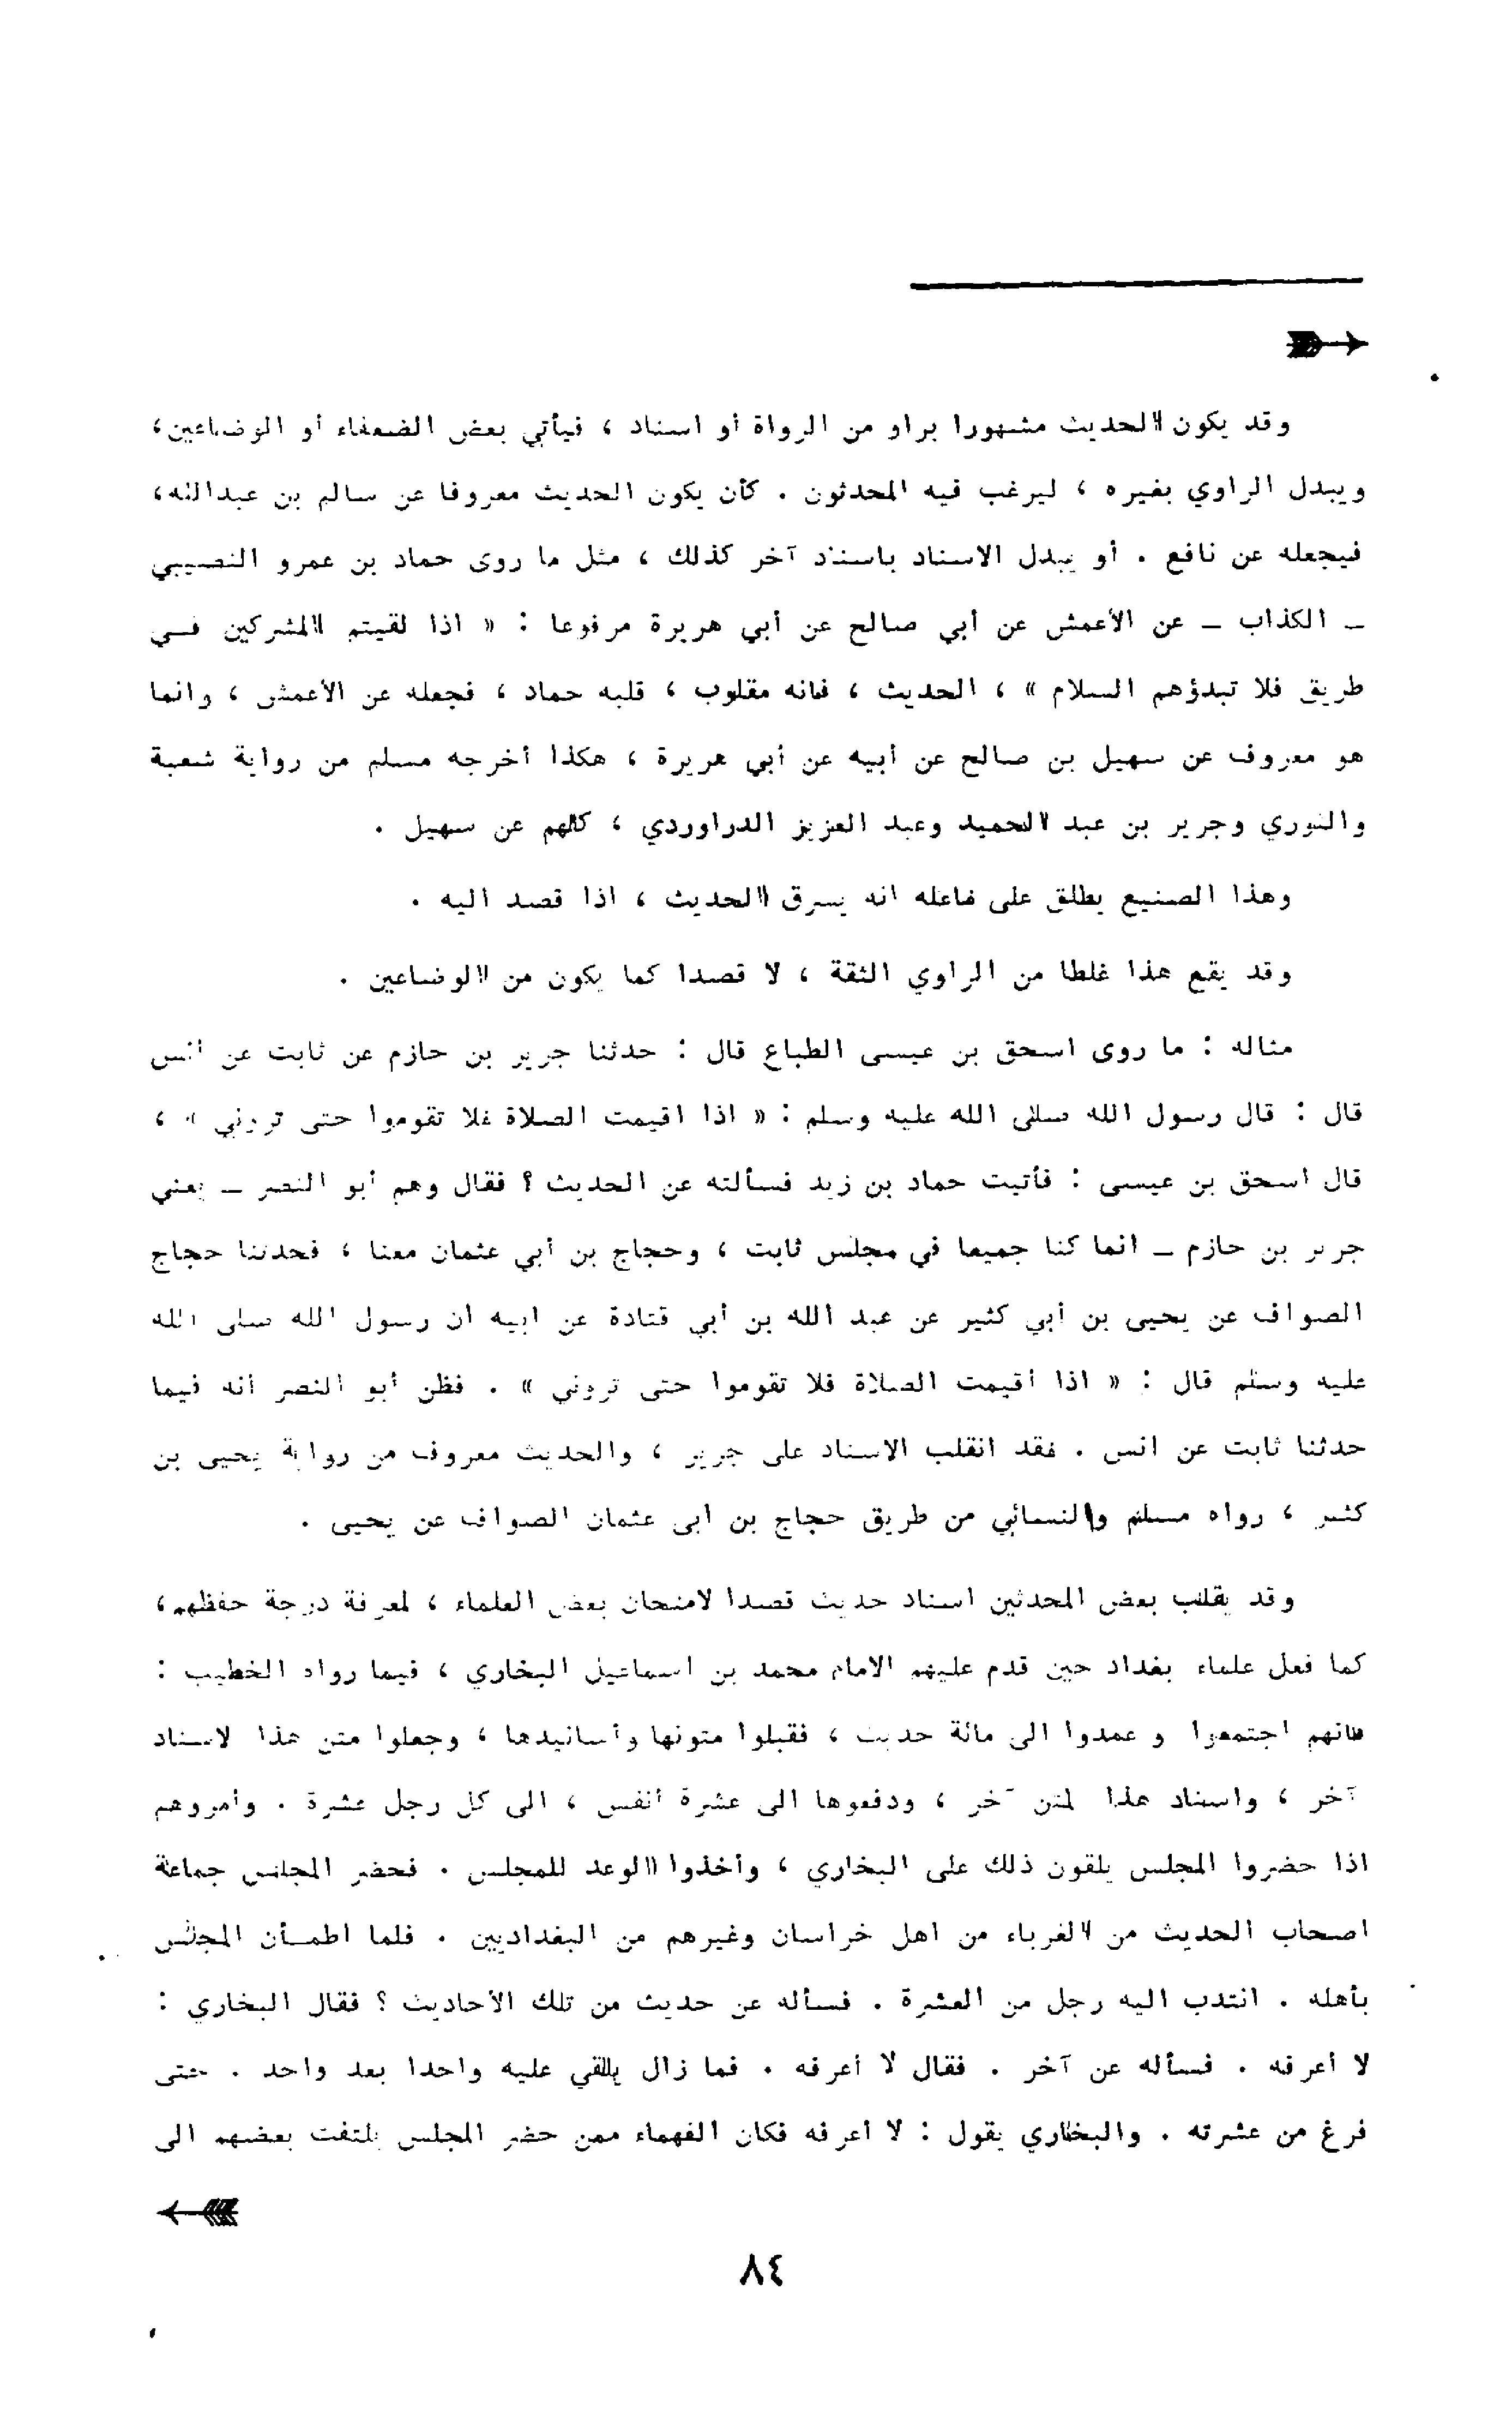 وقد يكون الحديث مشهورا براو من الرواة أو اسناد ، فيأتي بعض الضعفاء أو الوضاعين،
ويبدل الراوي بغيره ، ليرغب فيه المحدثون . كأن يكون الحديث معروفا عن سالم بن عبدالله،
فيجعله عن نافع . أو يبدل الاسناد باسناد آخر كذلك ، مثل ما روى حماد بن عمرو النصيبي
ـ الكذاب ـ عن الأعمش عن أبي صالح عن أبي هريرة مرفوعا : « اذا لقيتم المشركين فـي
طريق فلا تبدؤهم السلام » ، الحديث ، فانه مقلوب ، قلبه حماد ، فجعله عن الأعمش ، وانما
هو معروف عن سهيل بن صالح عن أبيه عن أبي هريرة ، هكذا أخرجه مسلم من رواية شعبة
والثوري وجرير بن عبد الحميد وعبد العزيز الدراوردي ، كلهم عن سهيل .
وهذا الصنيع يطلق على فاعله انه يسرق الحديث ، اذا قصد اليه .
وقد يقع هذا غلطا من الراوي الثقة ، لا قصدا كما يكون من الوضاعين .
مثاله : ما روى اسحق بن عيسى الطباع قال : حدثنا جرير بن حازم عن ثابت عن انس
قال : قال رسول الله صلى الله عليه وسلم : « اذا اقيمت الصلاة فلا تقوموا حتى تروني » ،
قال اسحق بن عيسى : فأتيت حماد بن زيد فسألته عن الحديث ؟ فقال وهم أبو النصر ـ يعني
جرير بن حازم ـ انما كنا جميعا في مجلس ثابت ، وحجاج بن أبي عثمان معنا ، فحدثنا حجاج
الصواف عن يحيى بن أبي كثير عن عبد الله بن أبي قتادة عن ابيه ان رسول الله صلى الله
عليه وسلم قال : « اذا أقيمت الصلاة فلا تقوموا حتى تروني » . فظن أبو النصر أنه فيما
حدثنا ثابت عن انس . فقد انقلب الاسناد على جرير ، والحديث معروف من رواية يحيى بن
كثير ، رواه مسلم والنسائي من طريق حجاج بن ابى عثمان الصواف عن يحيى .
وقد يقلب بعض المحدثين اسناد حديث قصدا لامتحان بعض العلماء ، لمعرفة درجة حفظهم،
كما فعل علماء بغداد حين قدم عليهم الامام محمد بن اسماعيل البخاري ، فيما رواه الخطيب :
فانهم اجتمعوا و عمدوا الى مائة حديث ، فقبلوا متونها وأسانيدها ، وجعلوا متن هذا لاسناد
آخر ، واسناد هذا لمتن آخر ، ودفعوها الى عشرة أنفس ، الى كل رجل عشرة . وأمروهم
اذا حضروا المجلس يلقون ذلك على البخاري ، وأخذوا الوعد للمجلس . فحضر المجلس جماعة
اصحاب الحديث من الغرباء من اهل خراسان وغيرهم من البغداديين . فلما اطمـأن المجلس
بأهله . انتدب اليه رجل من العشرة . فسأله عن حديث من تلك الأحاديث ؟ فقال البخاري :
لا أعرفه . فسأله عن آخر . فقال لا أعرفه . فما زال يلقي عليه واحدا بعد واحد . حتى
فرغ من عشرته . والبخاري يقول : لا أعرفه فكان الفهماء ممن حضر المجلس يلتفت بعضهم الى
٨٤